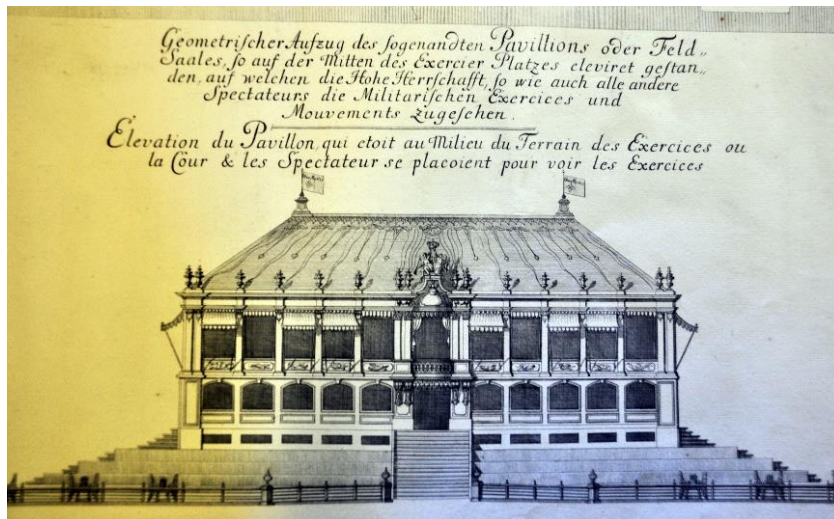 Geometrischer Aufzug des sogenandten Pavillions oder Feld„
Saales, so auf der Mitten des Exercier Platzes eleviret gestan„
den, auf welchen die Hohe Herrschafft, so wie auch alle andere
Spectateurs die Militarischen Exercices und
Mouvements zugesehen.
Elevation du Pavillon, qui etoit au Milieu du Terrain des Exercices ou
la Cour & les Spectateur se placoient pour voir les Exercices